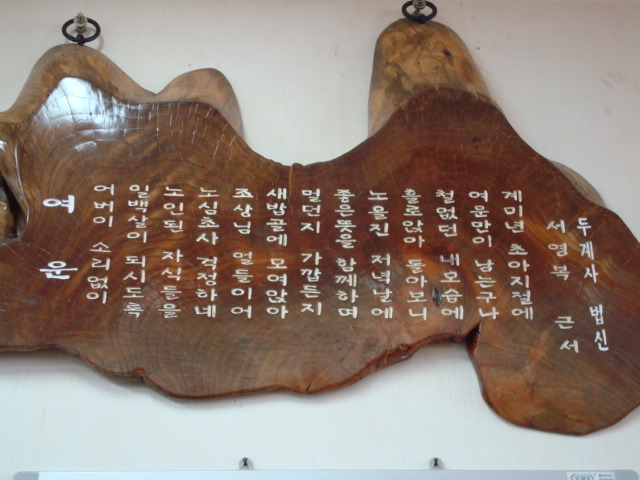 여운
어버이 소리없이
일백살이 되시도록
노인된 자식들을
노심초사 걱정하네
조상님 얼들이어
새밤골에 모여앉아
멀던지 가깝든지
좋은뜻을 함께하며
노을진 저녁날에
홀로앉아 돌아보니
철없던 내모습에
여운만이 남는구나
계미년 초아지절에
서영복 근서
두계사 법신